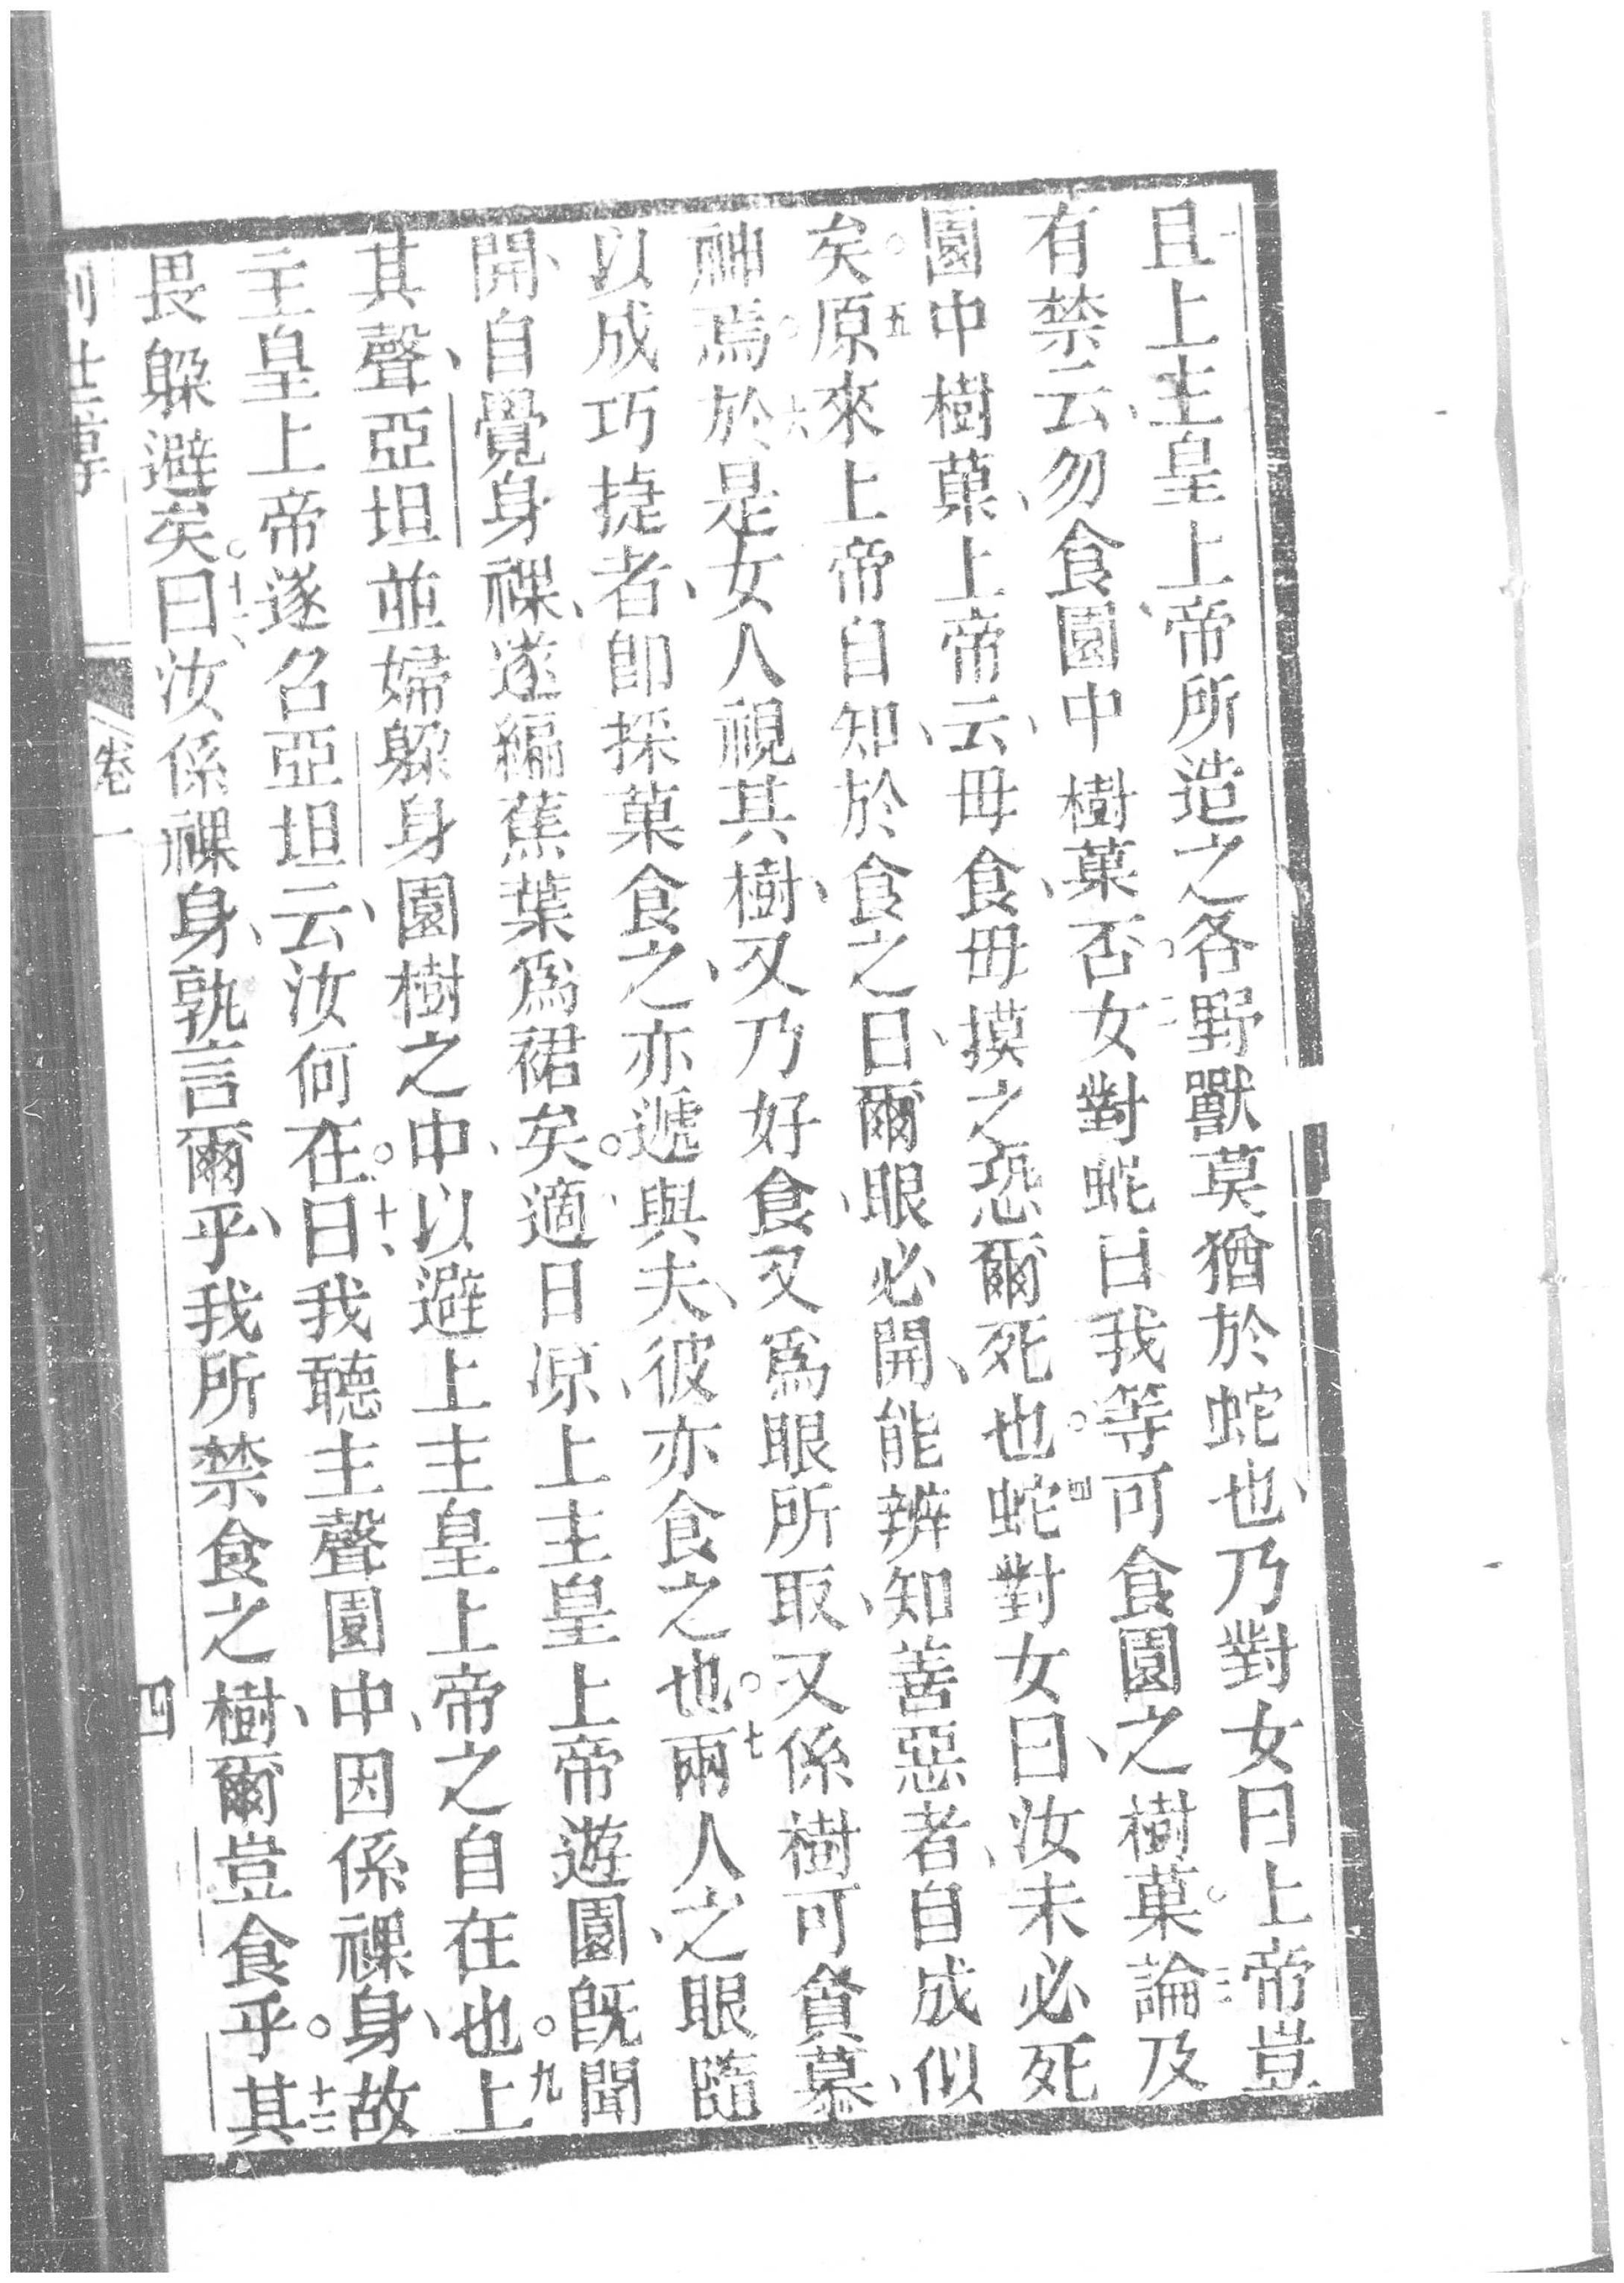 且上主皇上帝所造之各野獸莫猶於蛇也、乃對女曰、上帝豈
有禁云、勿食園中樹菓否。二女對蛇曰、我等可食園之樹菓。三論及
園中樹菓、上帝云、毋食、毋摸之、恐爾死也。四蛇對女曰、汝未必死
矣。五原來上帝自知、於食之日、爾眼必開、能辨知善惡者、自成似
神焉。六於是女人視其樹、又乃好食、又爲眼所取、又係樹可貪慕、
以成巧捷者、卽採菓食之、亦遞與夫、彼亦食之也。七兩人之眼隨
開、自覺身裸、遂編蕉葉爲裙矣。適日凉、上主皇上帝遊園、旣聞
其聲、亞坦並婦躲身園樹之中、以避上主皇上帝之自在也。九上
主皇上帝遂召亞坦云、汝何在。十曰、我聽主聲園中、因係裸身、故
畏躲避矣。十一曰、汝係裸身、孰言爾乎、我所禁食之樹、爾豈食乎。十二其
卷一
四